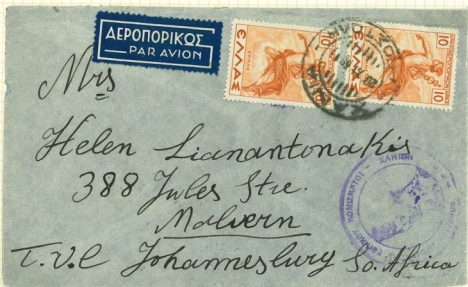 ΑΕΡΟΠΟΡΙΚΩΣ
PAR AVION
ΕΛΛΑΣ
10
ΕΛΛΑΣ
10
Mrs
Helen Lianantonakis
388 Jules Stre.
Malvern
T.V.L Johannesburg So. Africa
ΧΑΝΙΩΝ